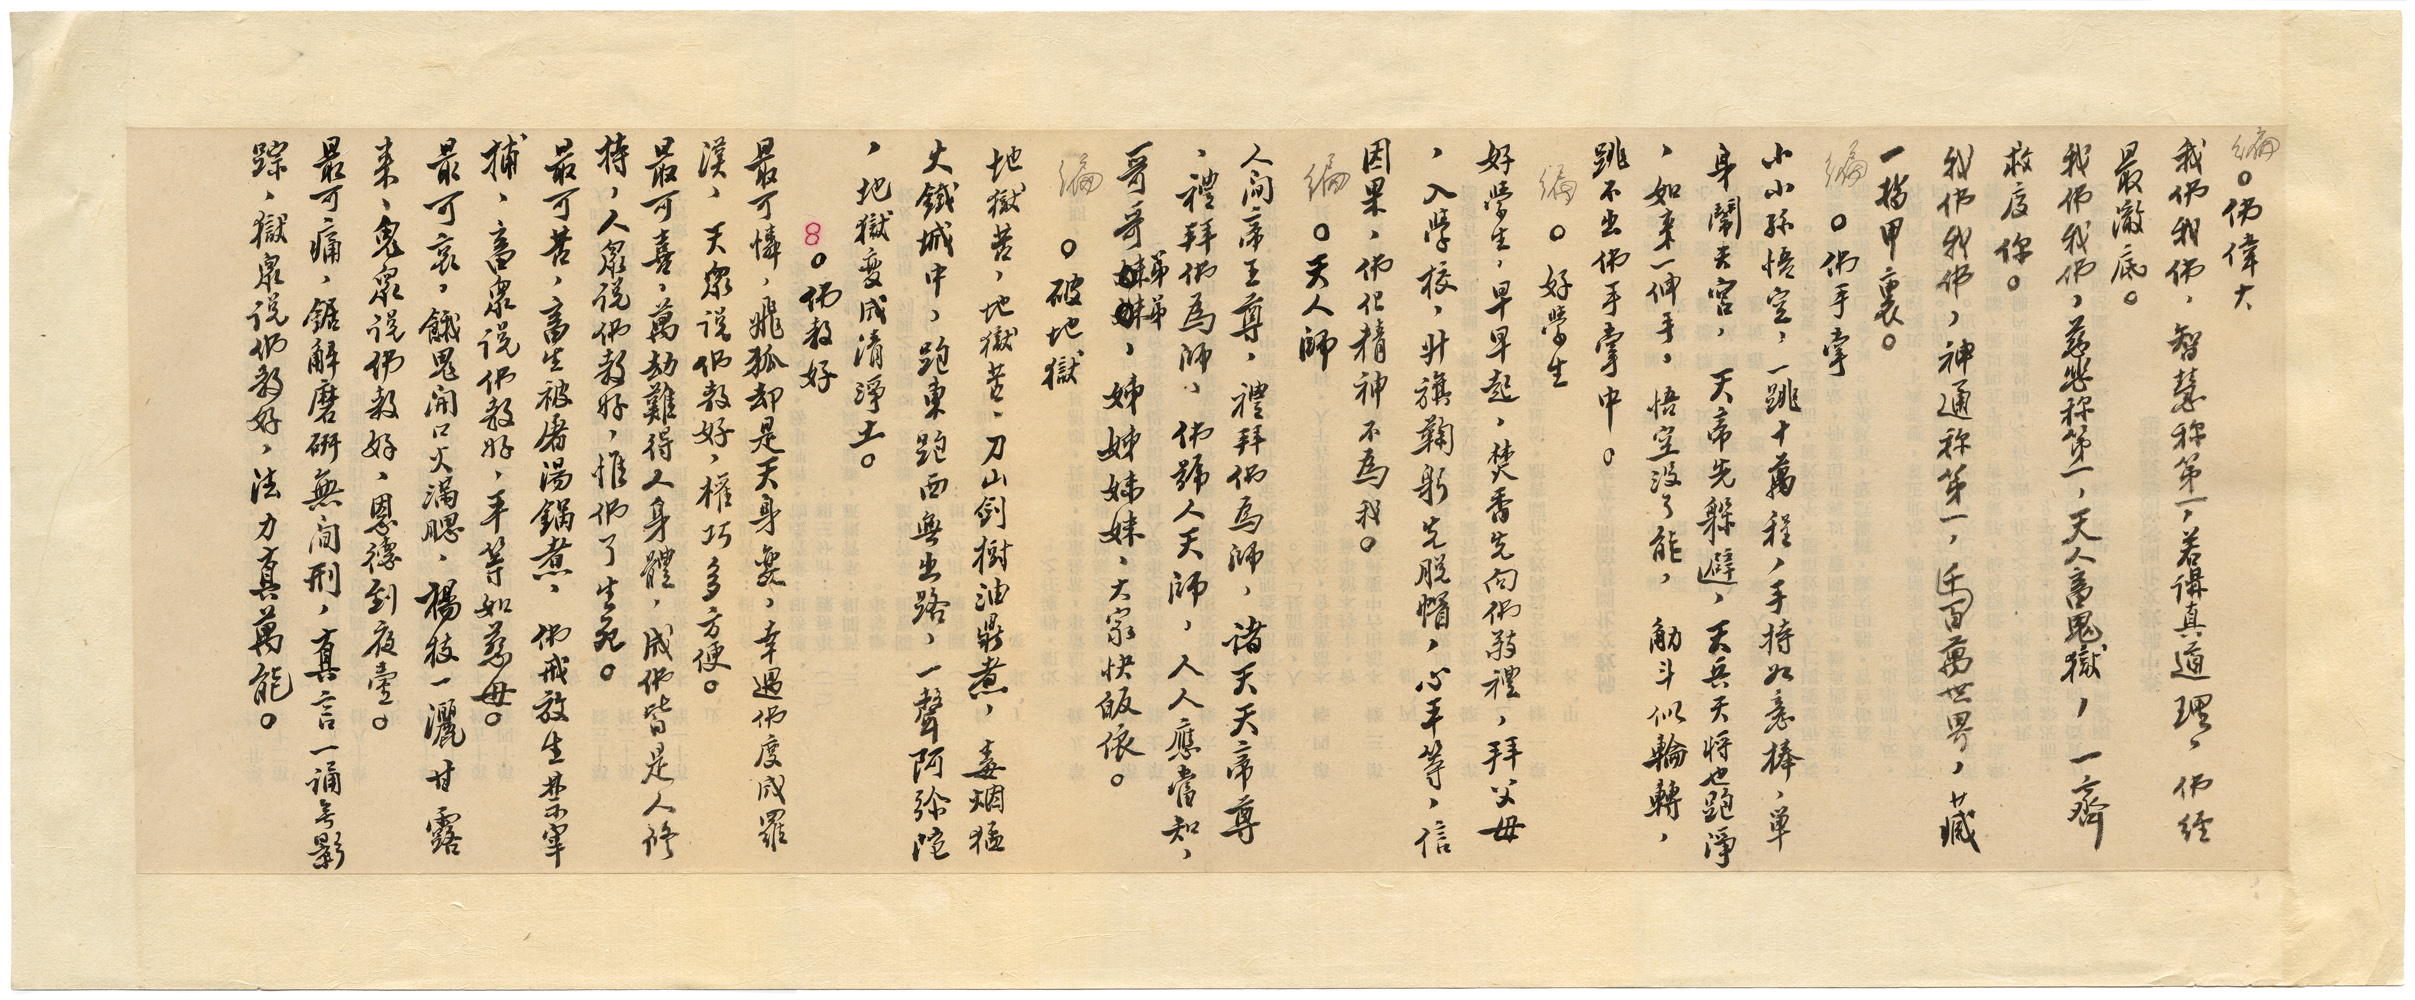 編 。佛偉大
我佛我佛，智慧称第一，若講真道理，佛经
最澈底。
我佛我佛，慈悲称第一，天人畜鬼獄，一齊
救度你。
我佛我佛，神通称第一，千百萬世界，藏
一指甲裏。
編 。佛手掌
小小孫悟空，一跳十萬程，手持如意棒，单
身鬧天宮，天帝先躲避，天兵天将也跑淨
，如来一伸手，悟空没了能，觔斗似輪轉，
跳不出佛手掌中。
編 。好學生
好學生，早早起，焚香先向佛敬禮，拜父母
，入學校，升旗鞠躬先脱帽，心平等，信
因果，佛化精神不為我。
編 。天人師
人间帝王尊，禮拜佛為師，諸天天帝尊
，禮拜佛為師，佛號人天師，人人應當知，
哥哥弟弟，姊姊妹妹，大家快皈依。
編 。破地獄
地獄苦，地獄苦，刀山剑樹油鼎煮，毒烟猛
火鐵城中，跑東跑西無出路，一聲阿弥陀
，地獄变成清淨土。
8 。佛教好
最可憐，飛狐却是天身变，幸遇佛度成羅
漢，天衆说佛教好，權巧多方便。
最可喜，萬劫難得人身體，成佛皆是人修
持，人衆说佛教好，惟佛了生死。
最可苦，畜生被屠湯鍋煮，佛戒放生禁宰
捕，畜衆说佛教好，平等如慈母。
最可哀，餓鬼開口火滿腮，楊枝一灑甘露
来，鬼衆说佛教好，恩德到夜臺。
最可痛，鋸解磨研無间刑，真言一诵无影
踪，獄衆说佛教好，法力真萬能。